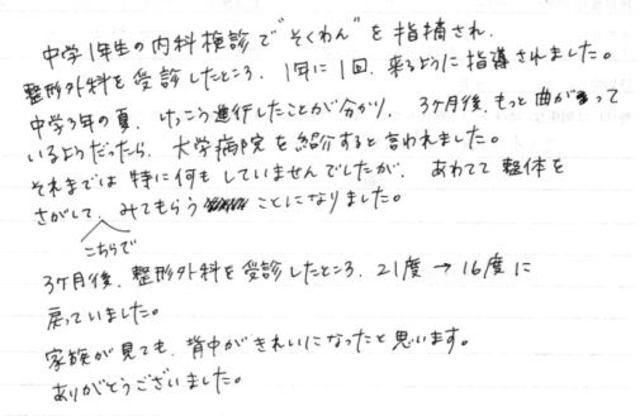 中学1年生の内科検診で"そくわん"を指摘され、
整形外科を受診したところ、1年に1回、来るように指導されました。
中学3年の夏、けっこう進行したことが分かり、3ヶ月後、もっと曲がって
いるようだったら、大学病院を紹介すると言われました。
それまでは特に何もしていませんでしたが、あわてて整体を
さがして、みてもらうことになりました。
こちらで
3ヶ月後、整形外科を受診したところ、21度→16度に
戻っていました。
家族が見ても、背中がきれいになったと思います。
ありがとうございました。